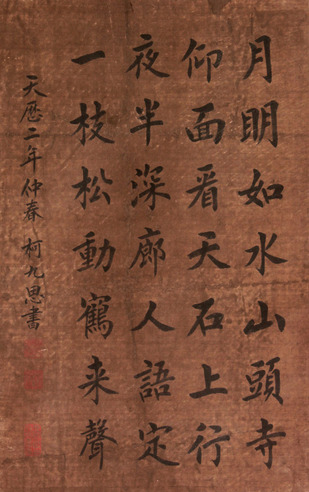 月明如水山頭寺
仰面看天石上行
夜半深廊人語定
一枝松動鶴来聲
天曆二年仲春 柯九思書